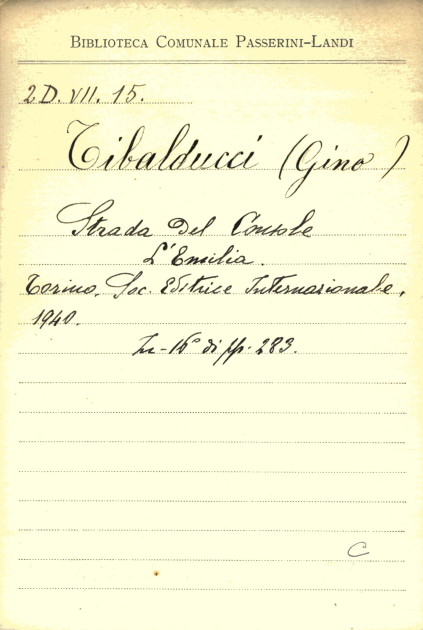 BIBLIOTECA COMUNALE PASSERINI-LANDI
2D. VII. 15.
Tibalducci (Gino)
Strada del Console
L'Emilia.
Torino. Soc. Editrice Internazionale,
1940.
In-16° di pp. 283.
C